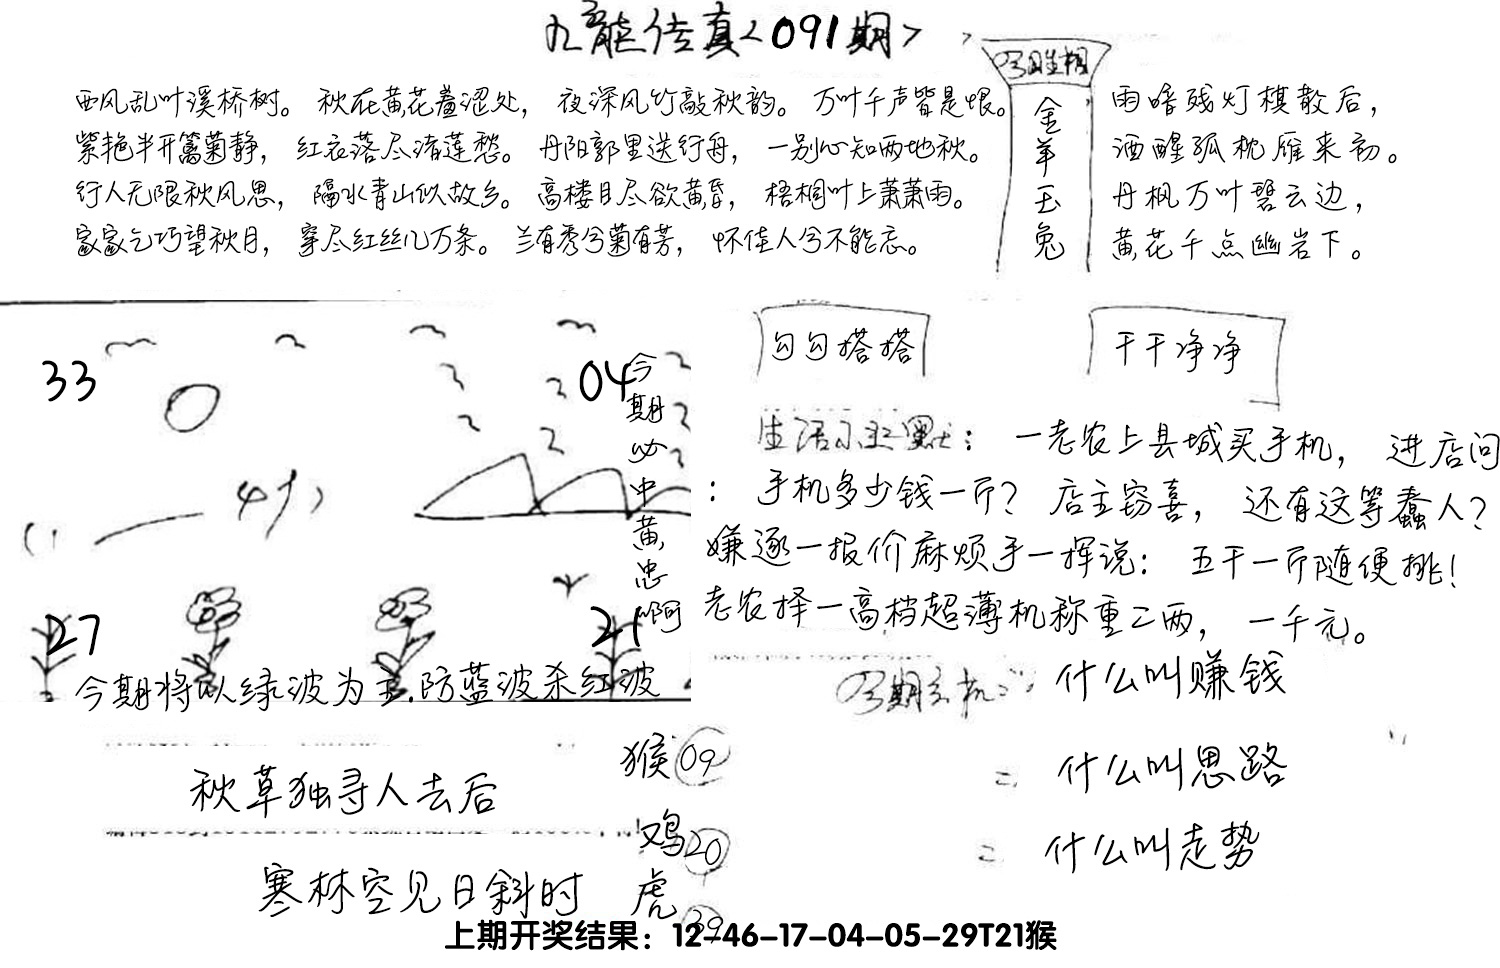 九龙传真<091期>
西风乱叶溪桥树。 秋在黄花羞涩处， 夜深风竹敲秋韵。 万叶千声皆是恨。
紫艳半开篱菊静， 红衣落尽渚莲愁。 丹阳郭里送行舟， 一别心知两地秋。
行人无限秋风思， 隔水青山似故乡。 高楼目尽欲黄昏， 梧桐叶上萧萧雨。
家家乞巧望秋月， 穿尽红丝几万条。 兰有秀兮菊有芳， 怀佳人兮不能忘。
金羊玉兔
雨暗残灯棋散后，
酒醒孤枕雁来初。
丹枫万叶碧云边，
黄花千点幽岩下。
33
04
今期必中黄忠啊
27
21
今期将以绿波为主.防蓝波杀红波
勾勾搭搭
干干净净
生活小幽默： 一老农上县城买手机， 进店问
： 手机多少钱一斤？ 店主窃喜， 还有这等蠢人？
嫌逐一报价麻烦手一挥说： 五千一斤随便挑！
老农择一高档超薄机称重二两， 一千元。
什么叫赚钱
= 什么叫思路
= 什么叫走势
秋草独寻人去后
寒林空见日斜时
猴 09
鸡 20
虎 39
上期开奖结果：12-46-17-04-05-29T21猴